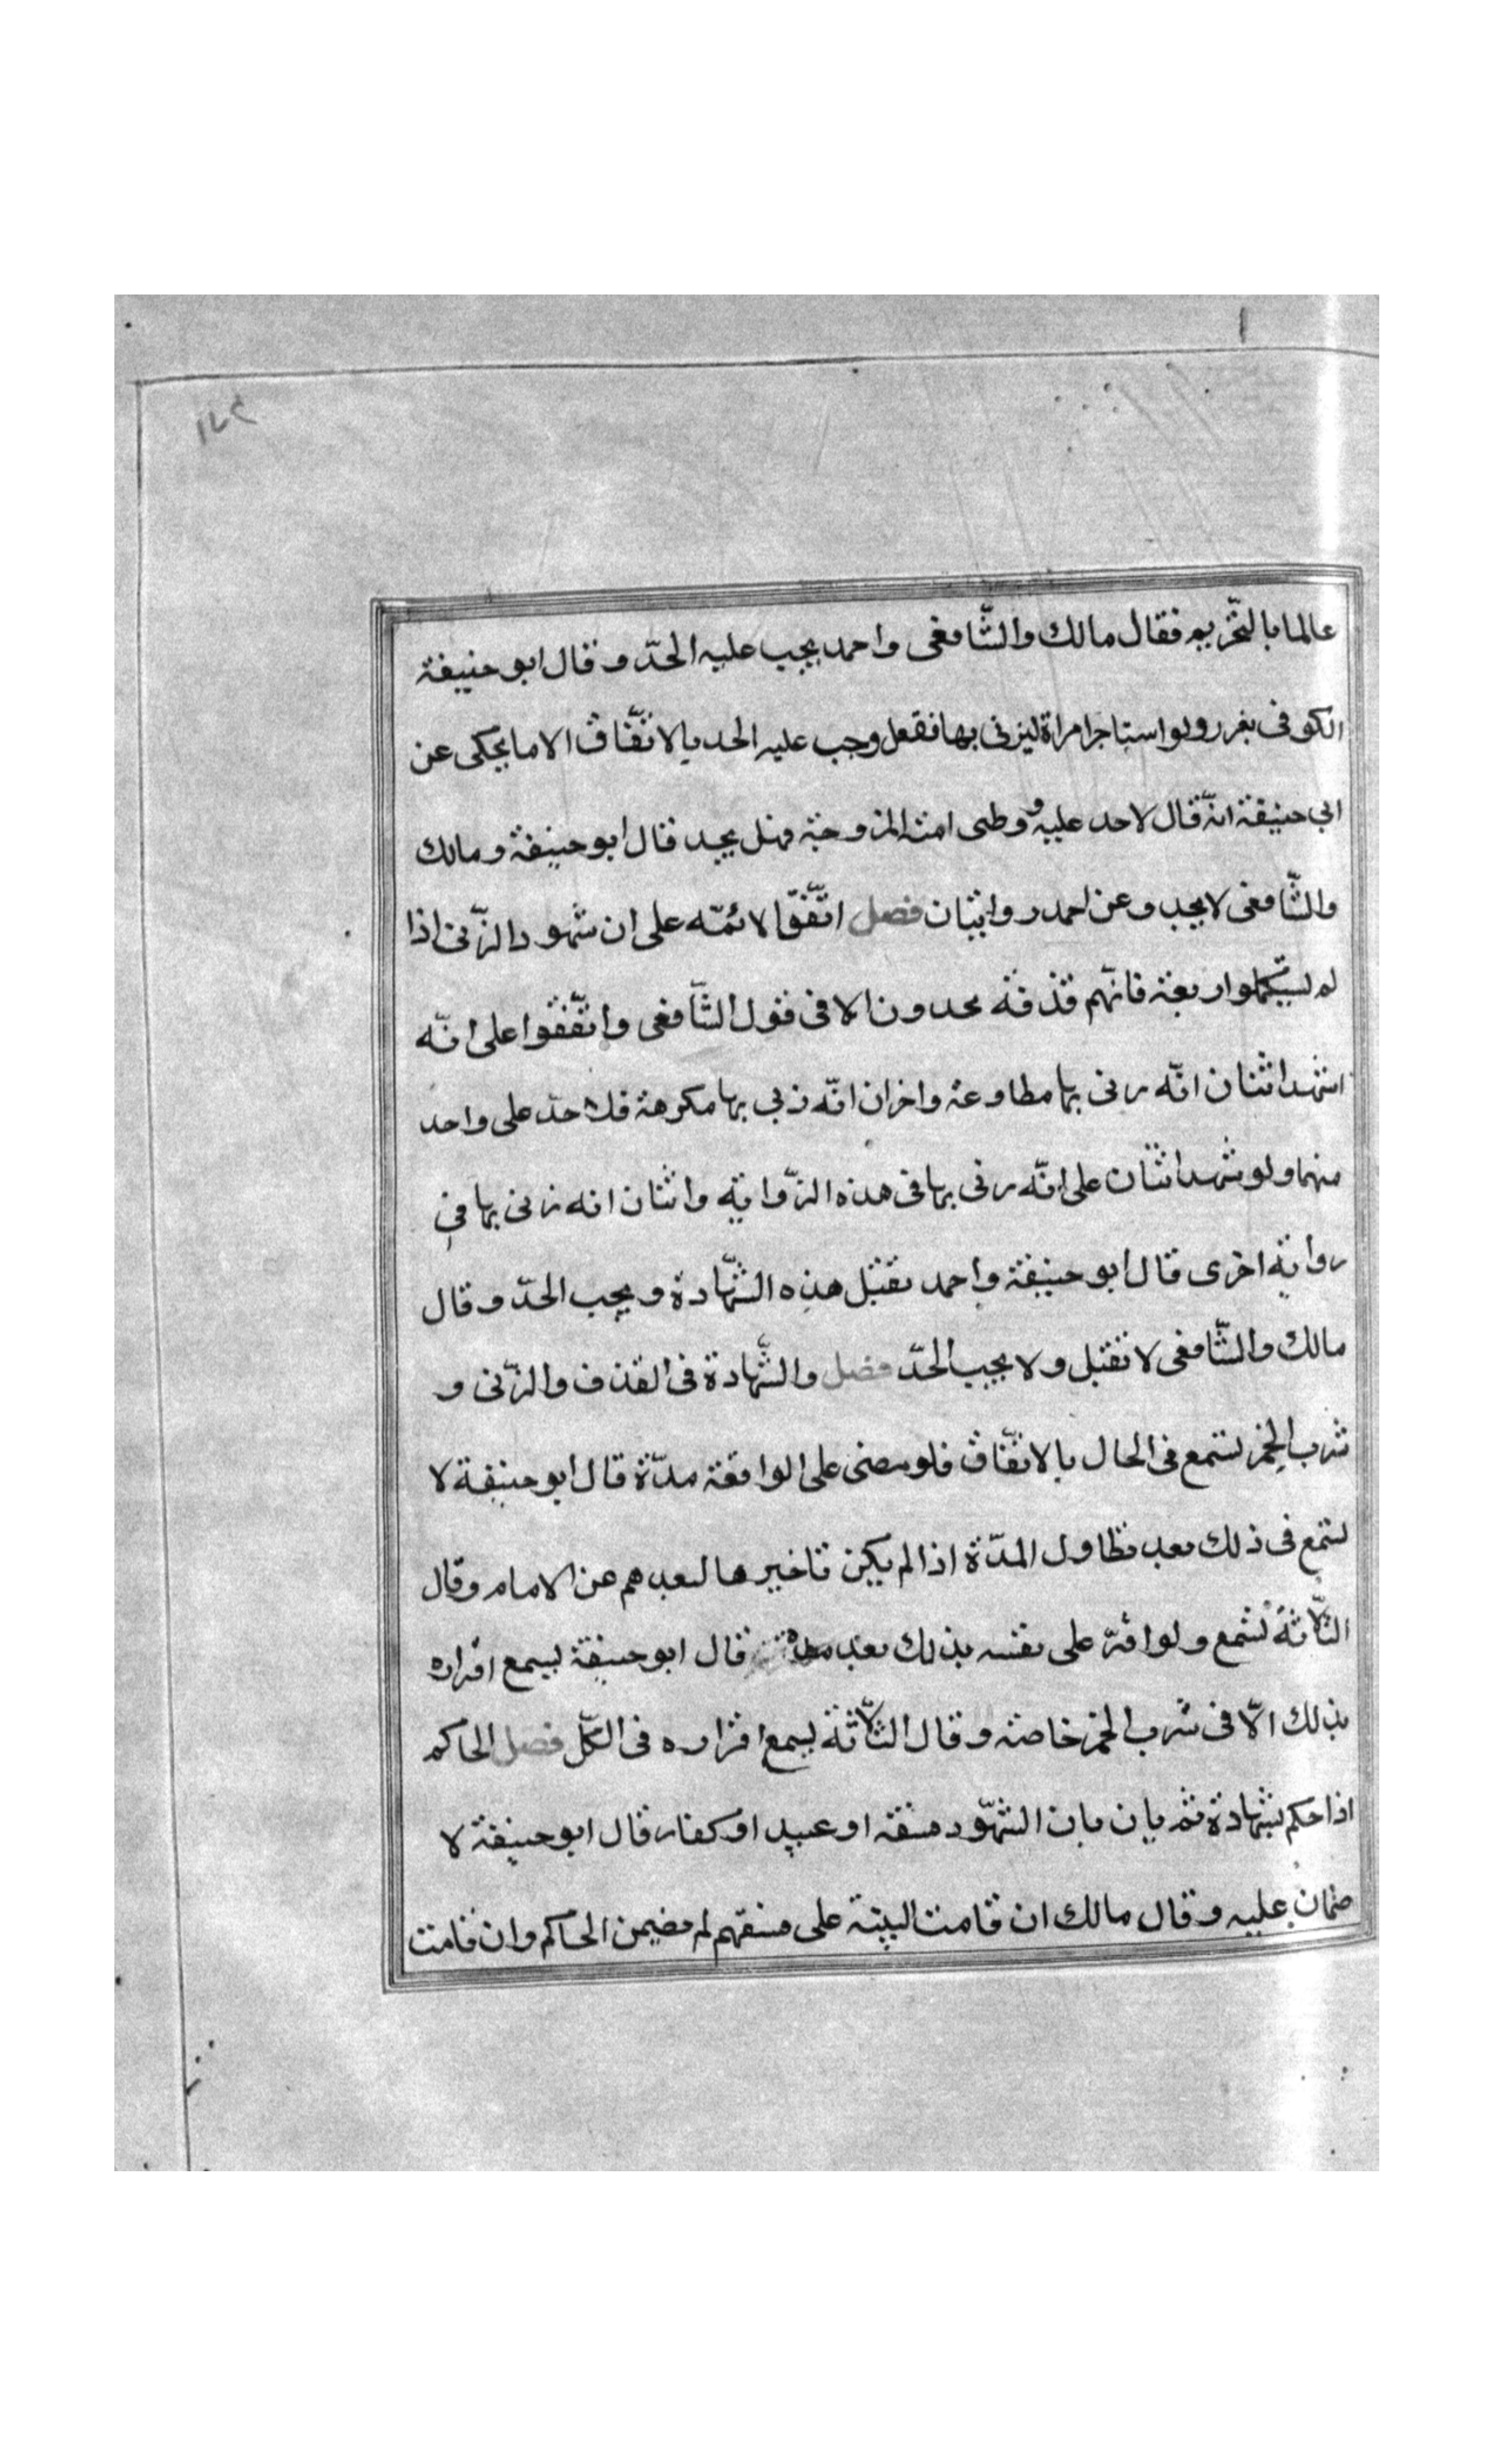 ١٧٤
عالما بالتحريم فقال مالك والشّافعى واحمد يجب عليه الحدّ وقال ابو حنيفة
الكوفى يغرر ولو استاجر امراة ليزنى بها ففعل وجب عليه الحد بالاتّفاق الا ما يحكى عن
ابي حنيفة انّه قال لا حد عليه و وطى امته المزوجة فهل يحد قال ابو حنيفة ومالك
والشّافعى لا يحد وعن احمد روايتان فصل اتّفقّ الائمّه على ان شهود الزّنى اذا
لم يستكملوا اربعة فانّهم قذفة يحدون الا فى قول الشّافعى واتّفقوا على انّه
اشهد اثنان انّه زنى بها مطاوعة واخران انّه زنى بها مكرهة فلا حدّ على واحد
منهما ولو شهد اثنان على انّه زنى بها فى هذه الزّواية واثنان انه زنى بها فى
رواية اخرى قال ابو حنيفة واحمد تقبل هذه الشّهادة ويجب الحدّ وقال
مالك والشّافعى لا تقبل ولا يجب الحدّ فصل والشّهادة فى القذف والزّنى و
شرب الخمر تسمع فى الحال بالاتّفاق فلو مضى على الواقعة مدّة قال ابو حنيفة لا
تسمع فى ذلك بعد تطاول المدّة اذا لم يكن تاخيرها لبعدهم عن الامام وقال
الثّلاثة تسمع ولو اقرّ على نفسه بذلك بعد مدة قال ابو حنيفة يسمع اقراره
بذلك الّا فى شرب الخمر خاصة وقال الثّلاثة يسمع اقراره فى الكلّ فصل الحاكم
اذا حكم بشهادة ثم بان بان الشّهود فسقة او عبيد او كفار قال ابو حنيفة لا
ضمان عليه وقال مالك ان قامت البينة على فسقهم لم يضمن الحاكم وان قامت